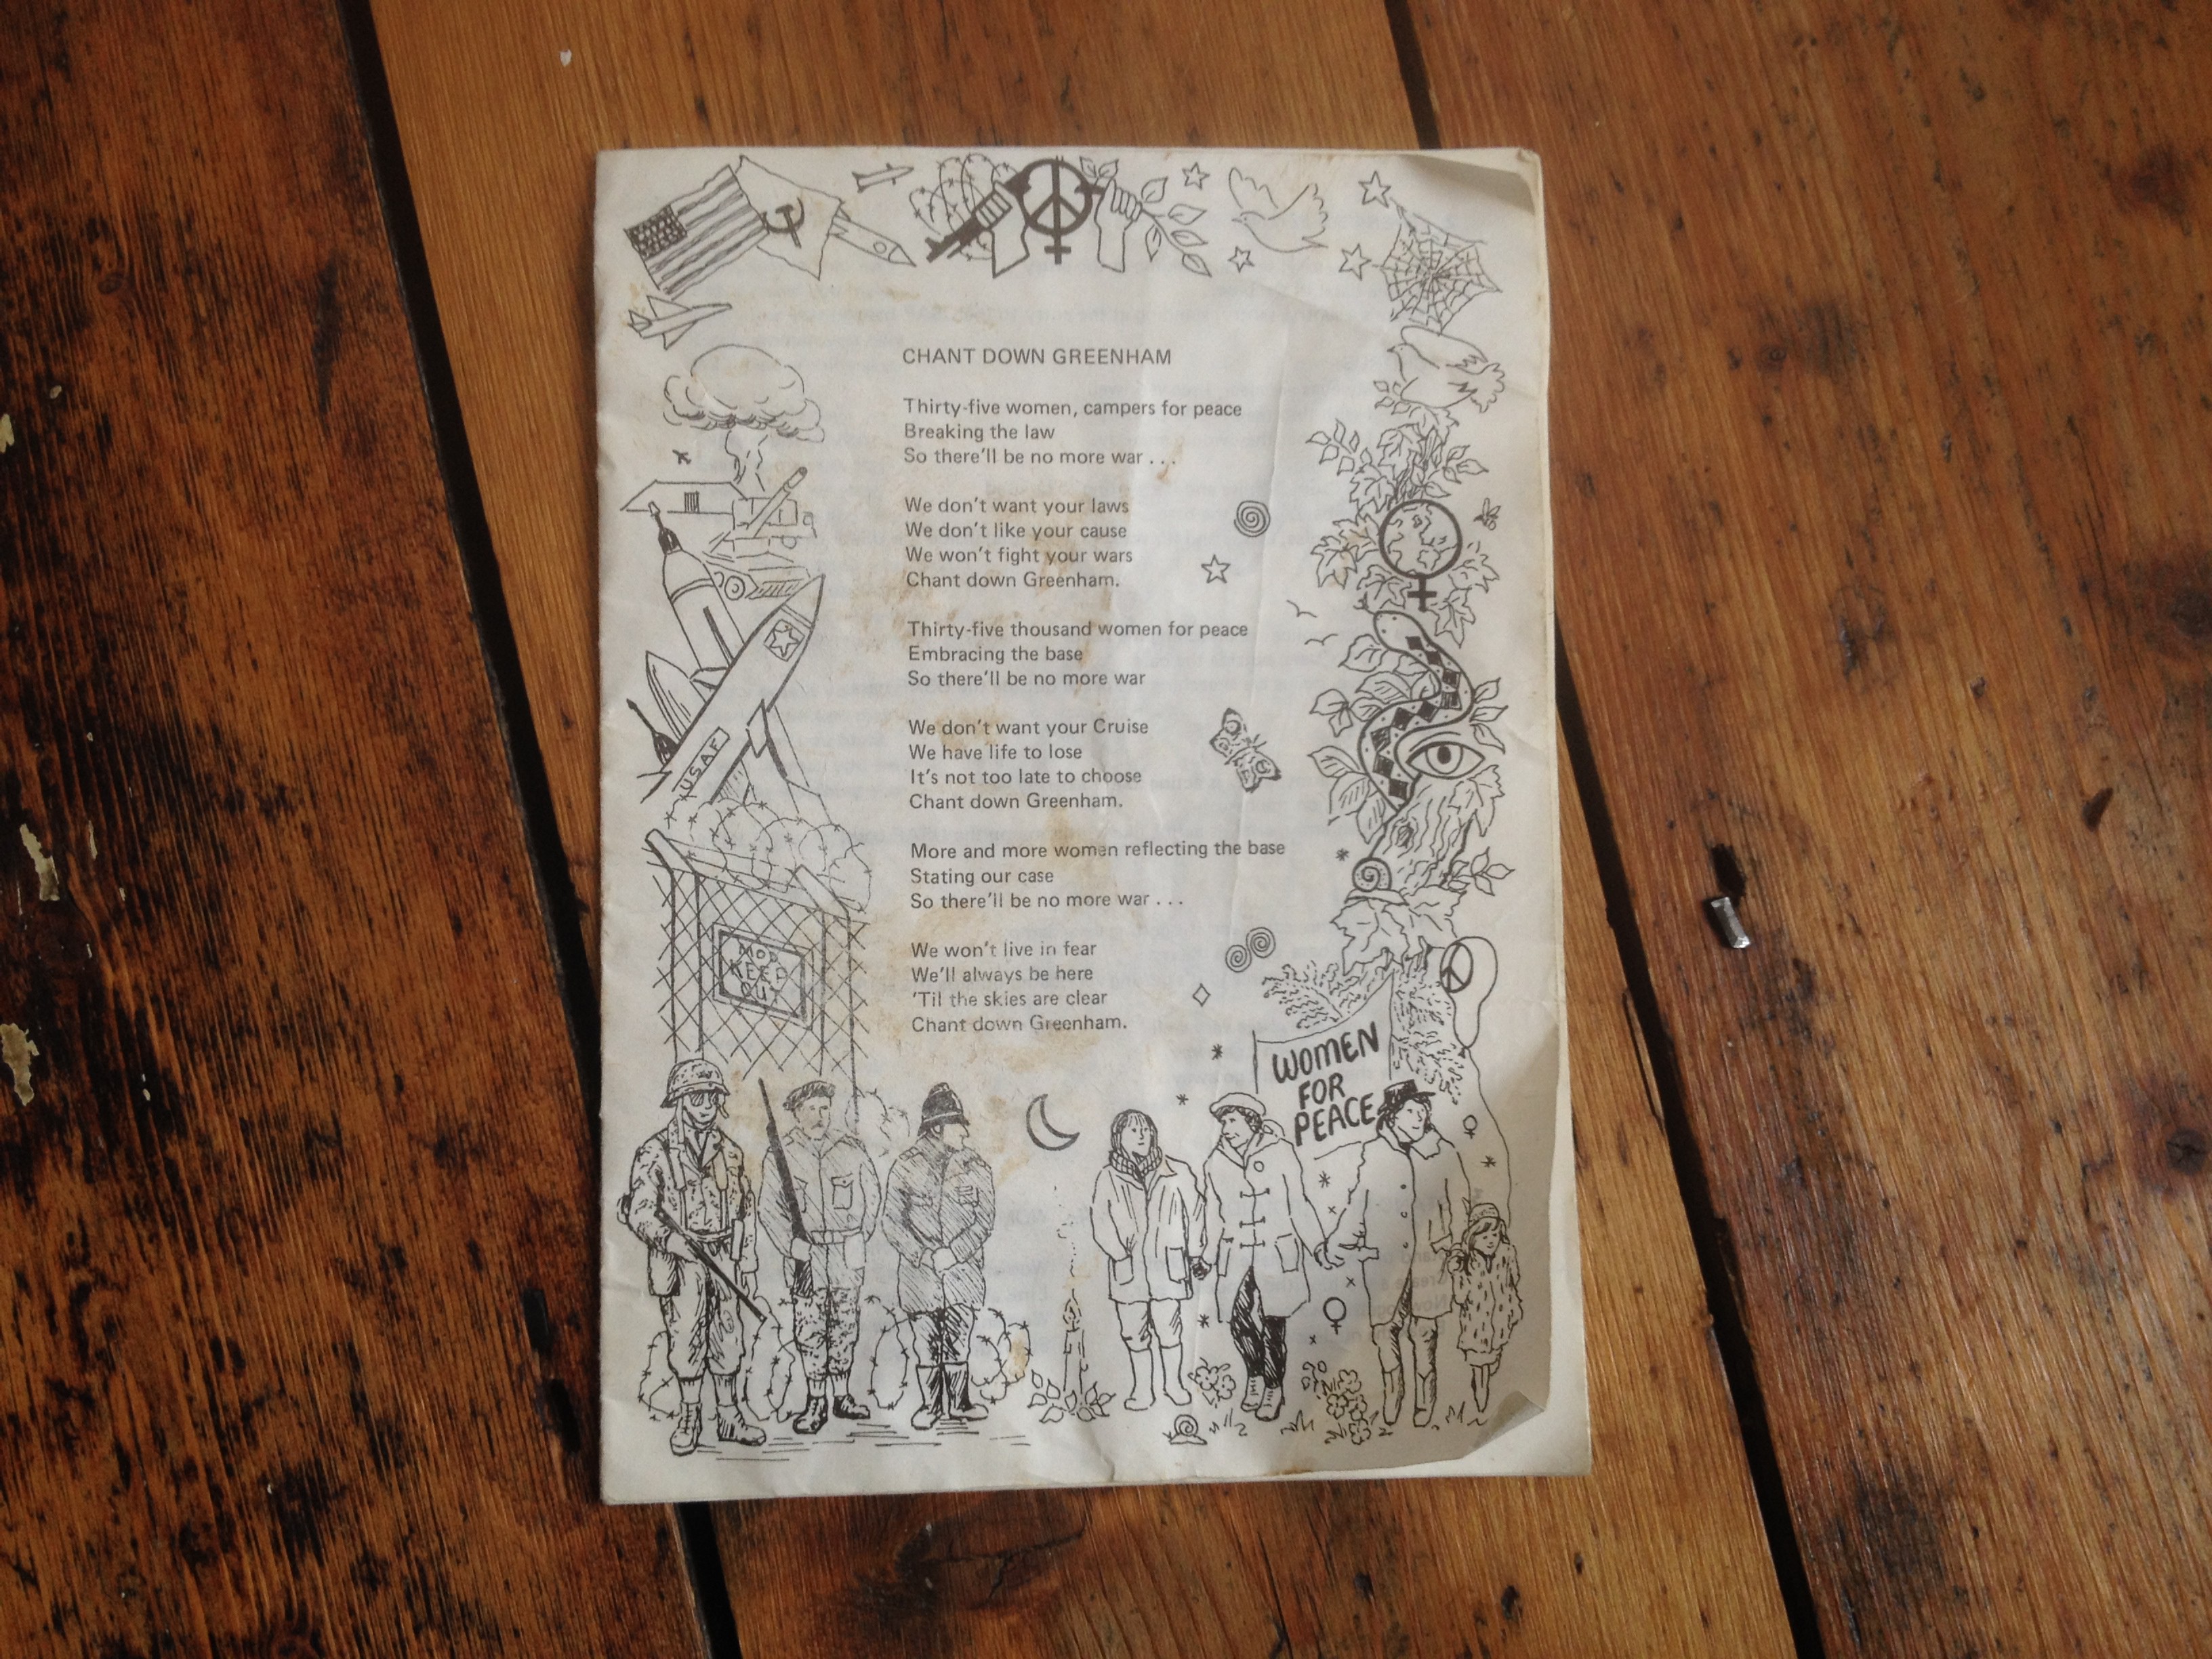 CHANT DOWN GREENHAM
Thirty-five women, campers for peace
Breaking the law
So there'll be no more war . . .
We don't want your laws
We don't like your cause
We won't fight your wars
Chant down Greenham.
Thirty-five thousand women for peace
Embracing the base
So there'll be no more war
We don't want your Cruise
We have life to lose
It's not too late to choose
Chant down Greenham.
More and more women reflecting the base
Stating our case
So there'll be no more war . . .
We won't live in fear
We'll always be here
'Til the skies are clear
Chant down Greenham.
USAF
MOD
KEEP
OUT
WOMEN
FOR
PEACE